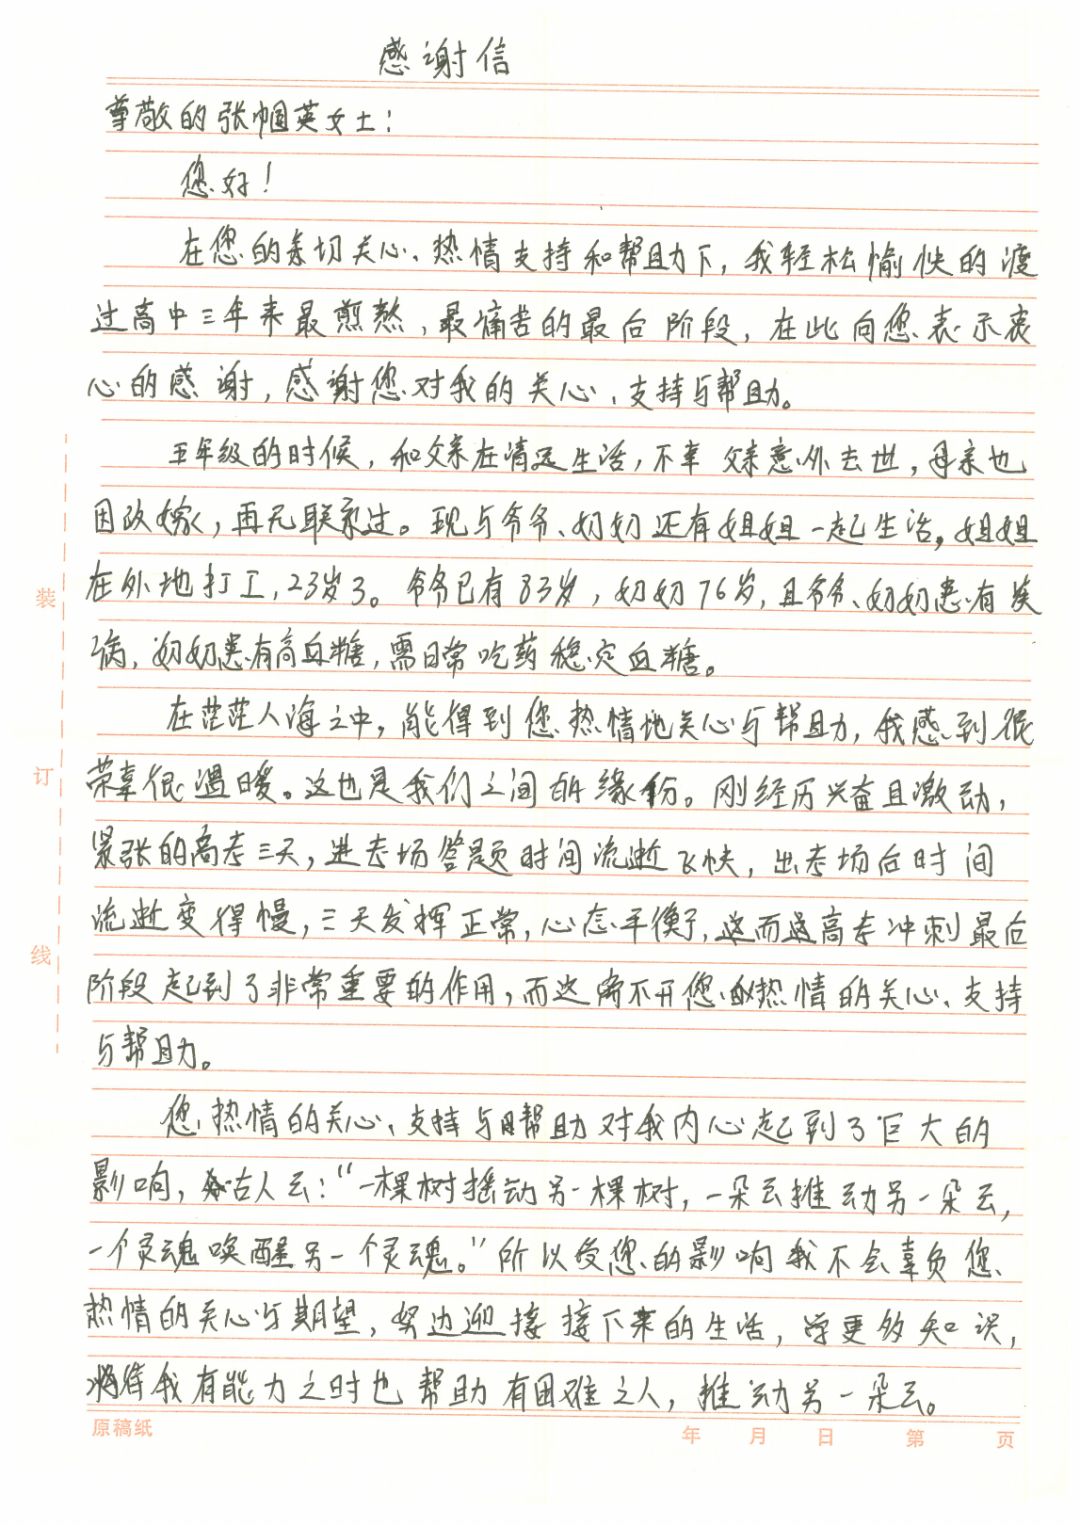 感谢信
尊敬的张帼英女士：
您好！
在您的亲切关心、热情支持和帮助下，我轻松愉快的渡
过高中三年来最煎熬，最痛苦的最后阶段，在此向您表示衷
心的感谢，感谢您对我的关心、支持与帮助。
五年级的时候，和父亲在清远生活，不幸父亲意外去世，母亲也
因改嫁，再无联系过。现与爷爷、奶奶还有姐姐一起生活，姐姐
在外地打工，23岁了。爷爷已有83岁，奶奶76岁，且爷爷、奶奶患有疾
病，奶奶患有高血糖，需日常吃药稳定血糖。
在茫茫人海之中，能得到您热情地关心与帮助，我感到很
荣幸很温暖。这也是我们之间的缘份。刚经历兴奋且激动，
紧张的高考三天，进考场答题时间流逝飞快，出考场后时间
流逝变得慢，三天发挥正常，心态平衡了，这而这高考冲刺最后
阶段起到了非常重要的作用，而这离不开您的热情的关心、支持
与帮助。
您热情的关心、支持与帮助对我内心起到了巨大的
影响，古人云：“一棵树摇动另一棵树，一朵云推动另一朵云，
一个灵魂唤醒另一个灵魂。”所以受您的影响我不会辜负您
热情的关心与期望，努力迎接接下来的生活，学更多知识，
将待我有能力之时也帮助有困难之人，推动另一朵云。
装
订
线
原稿纸
年 月 日 第 页